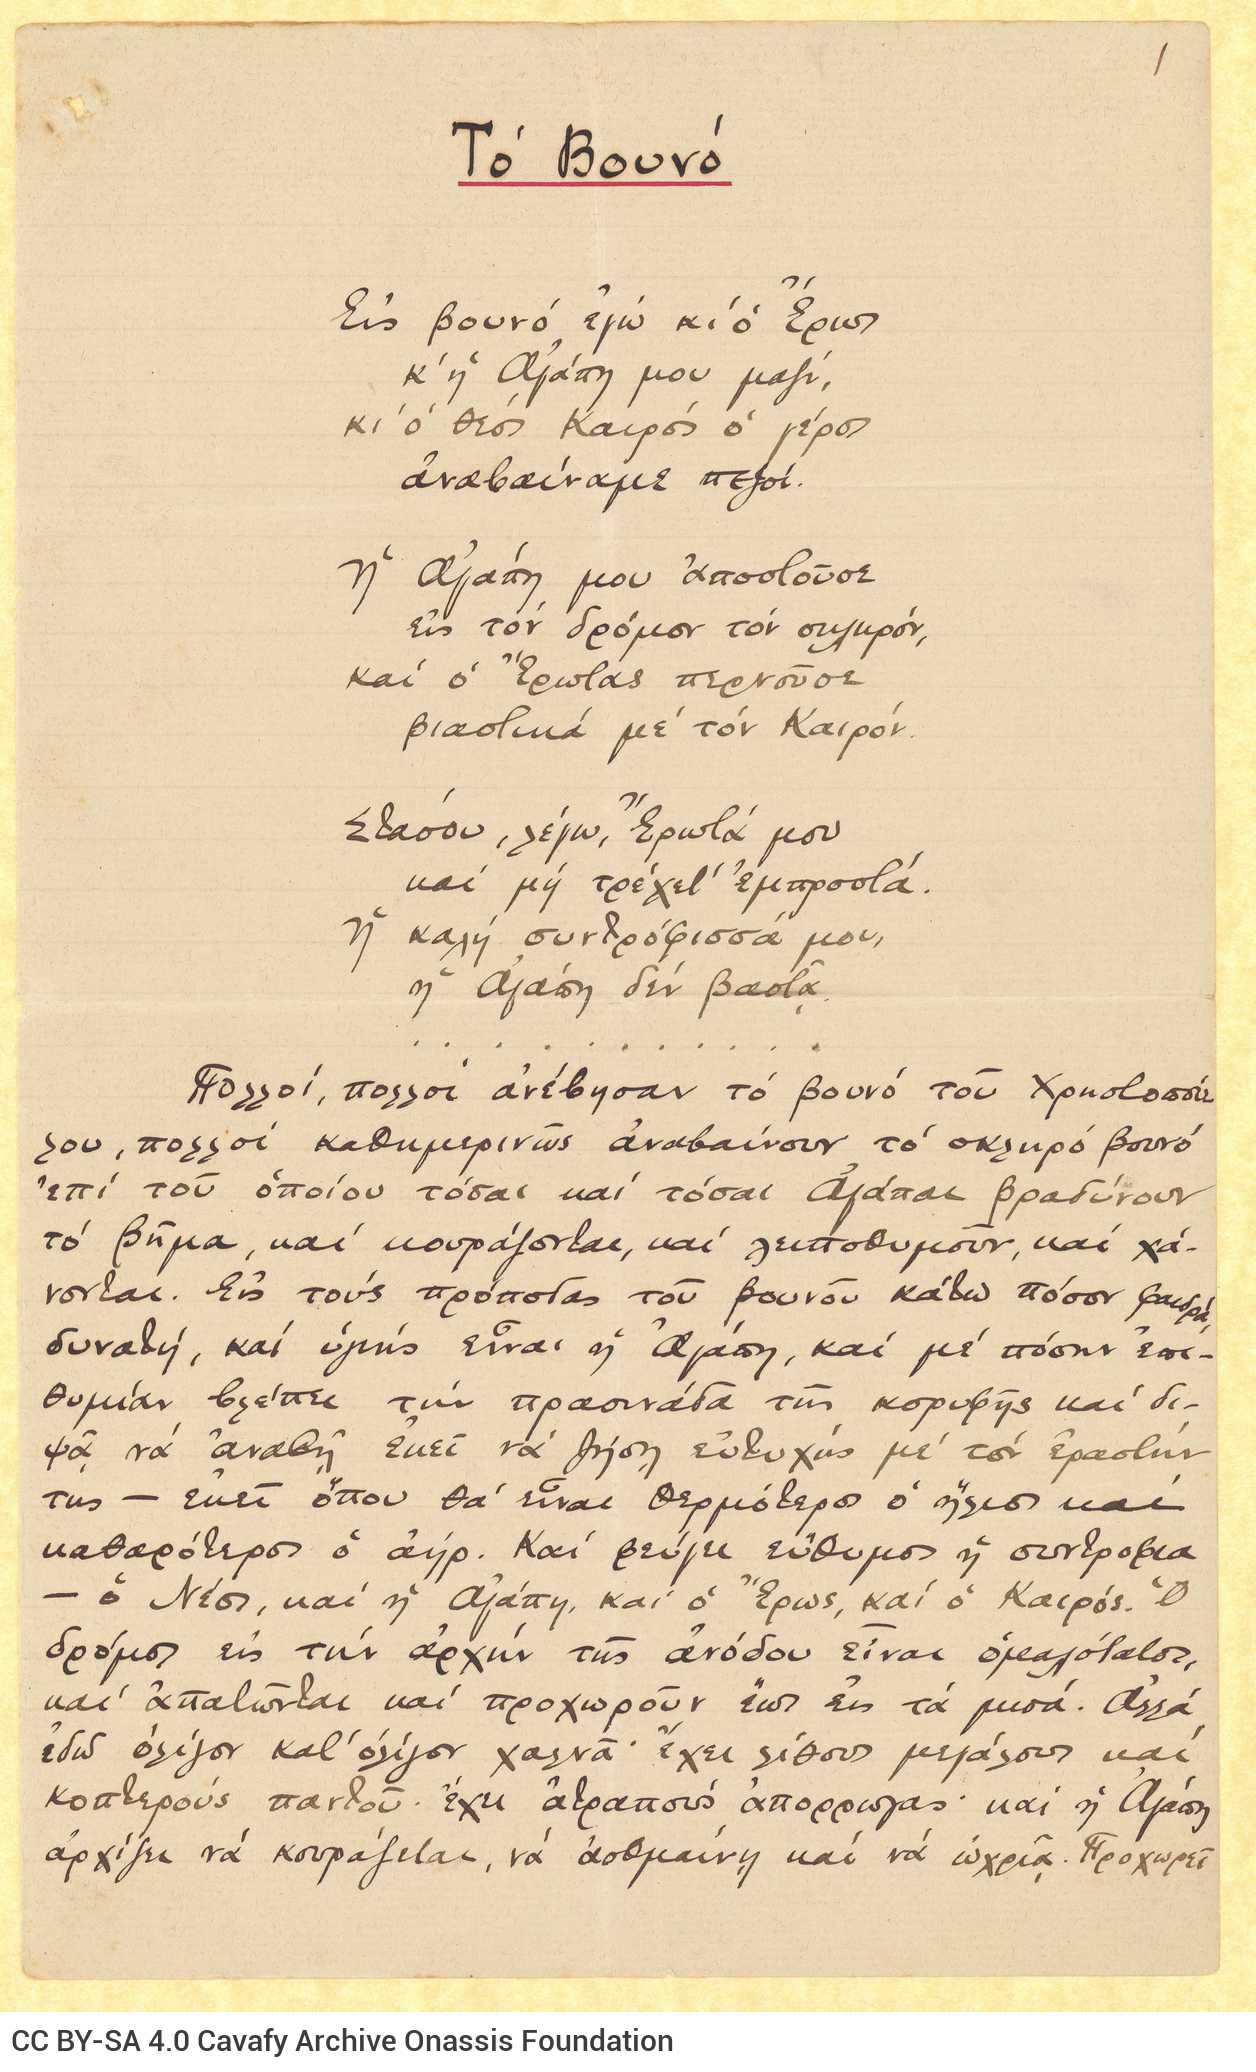 1
Τό Βουνό
Εἰς βουνό ἐγώ κι' ὁ Ἔρως
κ' ἡ Ἀγάπη μου μαζί,
κι' ὁ θεός Καιρός ὁ γέρος
ἀναβαίναμε πεζοί.
Ἡ Ἀγάπη μου ἀποστοῦσε
εἰς τόν δρόμον τόν σκληρόν,
καί ὁ Ἔρωτας περνοῦσε
βιαστικά μέ τόν Καιρόν.
Στάσου, λέγω, Ἔρωτά μου
καί μή τρέχετ' ἐμπροστά.
Ἡ καλή συντρόφισσά μου,
ἡ Ἀγάπη δέν βαστᾷ.
. . . . . . . . . . . .
Πολλοί, πολλοί ἀνέβησαν τό βουνό τοῦ Χρηστοπού-
λου, πολλοί καθημερινῶς ἀναβαίνουν τό σκληρό βουνό
ἐπί τοῦ ὁποίου τόσαι καί τόσαι Ἀγάπαι βραδύνουν
τό βῆμα, καί κουράζονται, καί λειποθυμοῦν, καί χά-
νονται. Εἰς τούς πρόποδας τοῦ βουνοῦ κάτω πόσον φαιδρά,
δυνατή, καί ὑγιής εἶναι ἡ Ἀγάπη, καί μέ πόσην ἐπι-
θυμίαν βλέπει τήν πρασινάδα τῆς κορυφῆς καί δι-
ψᾷ νά ἀναβῇ ἐκεῖ νά ζήσῃ εὐτυχής μέ τόν ἐραστήν
της — ἐκεῖ ὅπου θά εἶναι θερμότερος ὁ ἥλιος καί
καθαρότερος ὁ ἀήρ. Καί φεύγει εὔθυμος ἡ συντροφιά
— ὁ Νέος, καί ἡ Ἀγάπη, καί ὁ Ἔρως, καί ὁ Καιρός. Ὁ
δρόμος εἰς τήν ἀρχήν τῆς ἀνόδου εἶναι ὁμαλότατος,
καί ἀπατῶνται καί προχωροῦν ἕως εἰς τά μισά. Ἀλλά
ἐδῶ ὀλίγον κατ' ὀλίγον χαλνᾶ· ἔχει λίθους μεγάλους καί
κοπτερούς παντοῦ· ἔχει ἀτραπούς ἀπορρῶγας· καί ἡ Ἀγάπη
ἀρχίζει νά κουράζεται, νά ἀσθμαίνῃ καί νά ὠχριᾷ. Προχωρεῖ
CC BY-SA 4.0 Cavafy Archive Onassis Foundation